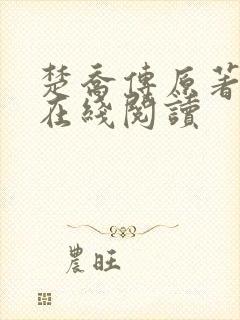 楚喬傳原著
在綫閱讀
農旺